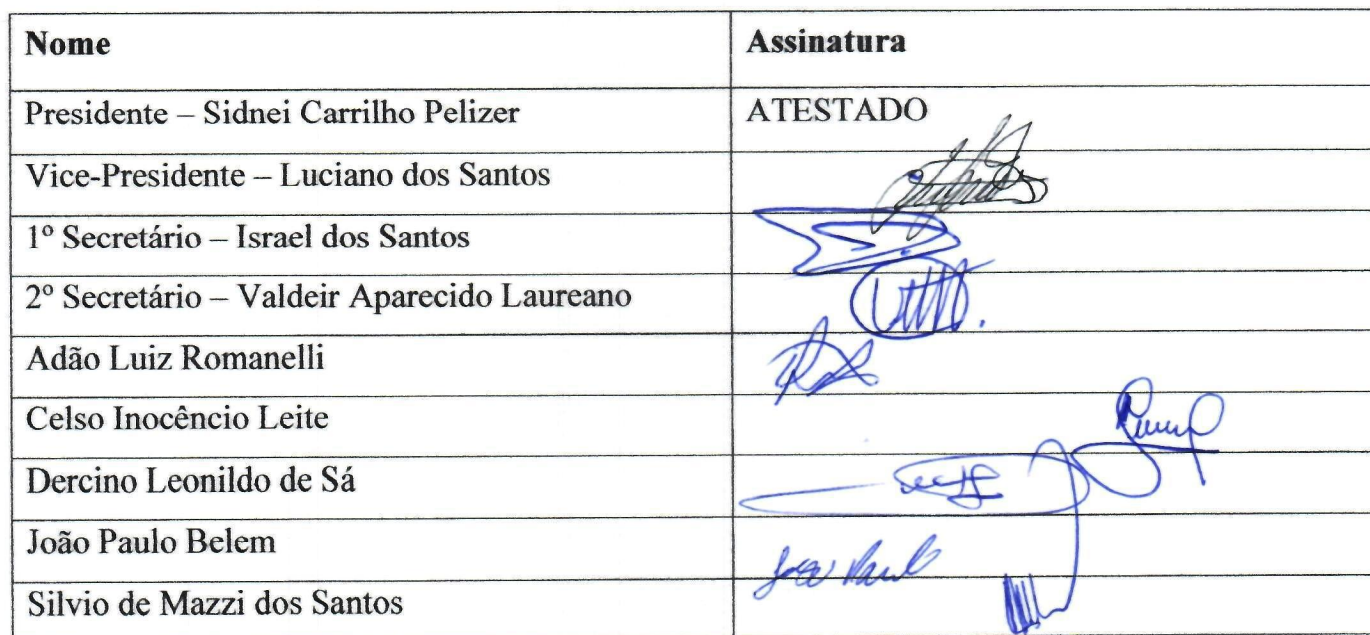 Nome Assinatura
Presidente – Sidnei Carrilho Pelizer ATESTADO
Vice-Presidente – Luciano dos Santos
1º Secretário – Israel dos Santos
2º Secretário – Valdeir Aparecido Laureano
Adão Luiz Romanelli
Celso Inocêncio Leite
Dercino Leonildo de Sá
João Paulo Belem
João Paulo
Silvio de Mazzi dos Santos